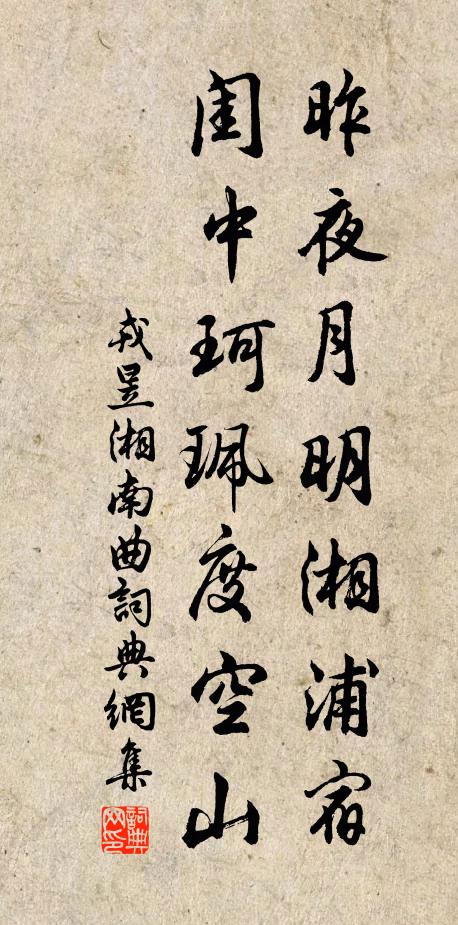 昨夜月明湘浦宿
閨中珂珮度空山
戎昱湘南曲詞典網集
詞典網印